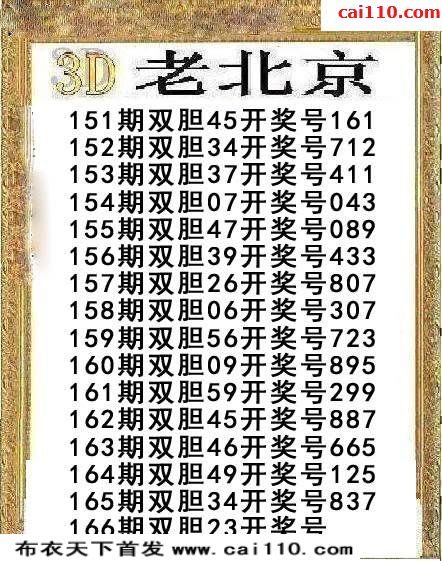 cai110.com
3D 老北京
151期双胆45开奖号161
152期双胆34开奖号712
153期双胆37开奖号411
154期双胆07开奖号043
155期双胆47开奖号089
156期双胆39开奖号433
157期双胆26开奖号807
158期双胆06开奖号307
159期双胆56开奖号723
160期双胆09开奖号895
161期双胆59开奖号299
162期双胆45开奖号887
163期双胆46开奖号665
164期双胆49开奖号125
165期双胆34开奖号837
166期双胆23开奖号
布衣天下首发 www.cai110.com